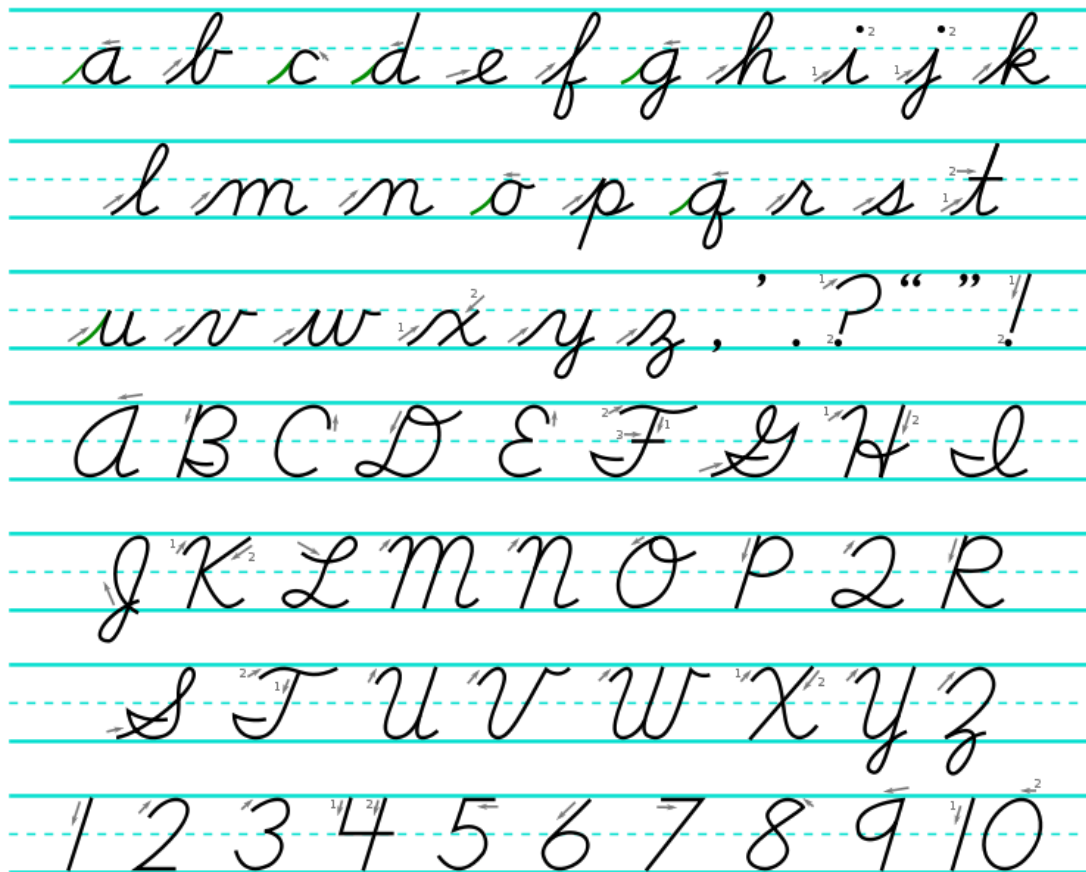 a b c d e f g h i j k
l m n o p q r s t
u v w x y z , . ’ ? “ ” !
A B C D E F G H I
J K L M N O P Q R
S T U V W X Y Z
1 2 3 4 5 6 7 8 9 10